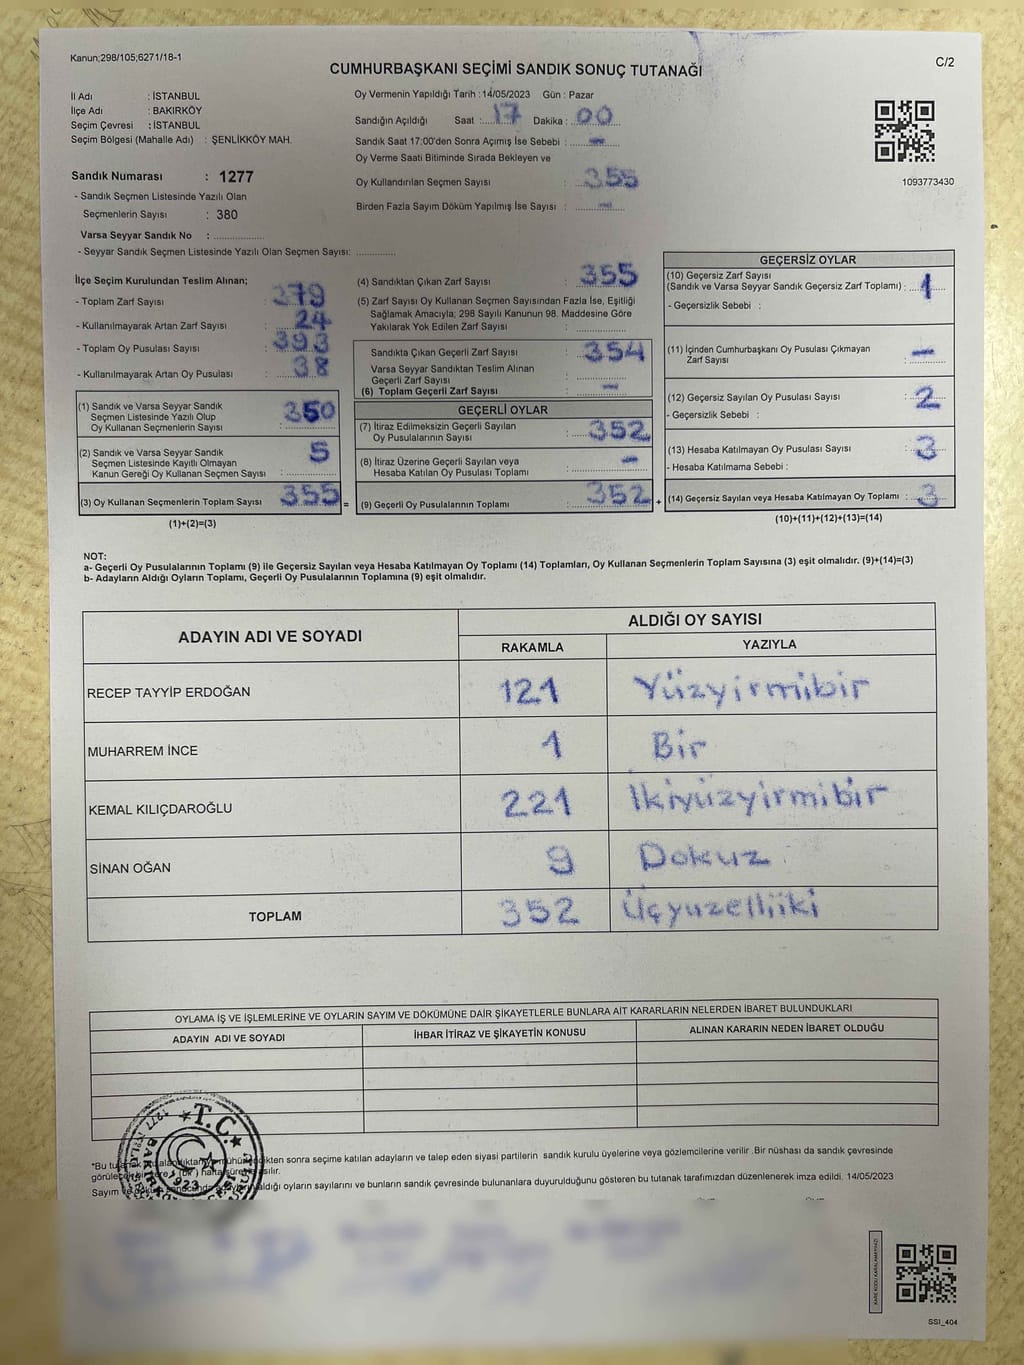 Kanun;298/105;6271/18-1
C/2
CUMHURBAŞKANI SEÇİMİ SANDIK SONUÇ TUTANAĞI
İl Adı : İSTANBUL
İlçe Adı : BAKIRKÖY
Seçim Çevresi : İSTANBUL
Seçim Bölgesi (Mahalle Adı) : ŞENLİKKÖY MAH.
Oy Vermenin Yapıldığı Tarih : 14/05/2023 Gün : Pazar
Sandığın Açıldığı Saat : 17 Dakika : 00
Sandık Saat 17:00'den Sonra Açımış İse Sebebi : —
Oy Verme Saati Bitiminde Sırada Bekleyen ve
Oy Kullandırılan Seçmen Sayısı : 355
Birden Fazla Sayım Döküm Yapılmış İse Sayısı : —
1093773430
Sandık Numarası : 1277
- Sandık Seçmen Listesinde Yazılı Olan
Seçmenlerin Sayısı : 380
Varsa Seyyar Sandık No :
- Seyyar Sandık Seçmen Listesinde Yazılı Olan Seçmen Sayısı:
İlçe Seçim Kurulundan Teslim Alınan;
- Toplam Zarf Sayısı : 379
- Kullanılmayarak Artan Zarf Sayısı : 24
- Toplam Oy Pusulası Sayısı : 393
- Kullanılmayarak Artan Oy Pusulası : 38
(1) Sandık ve Varsa Seyyar Sandık
Seçmen Listesinde Yazılı Olup
Oy Kullanan Seçmenlerin Sayısı : 350
(2) Sandık ve Varsa Seyyar Sandık
Seçmen Listesinde Kayıtlı Olmayan
Kanun Gereği Oy Kullanan Seçmen Sayısı : 5
(3) Oy Kullanan Seçmenlerin Toplam Sayısı : 355 =
(1)+(2)=(3)
(4) Sandıktan Çıkan Zarf Sayısı : 355
(5) Zarf Sayısı Oy Kullanan Seçmen Sayısından Fazla İse, Eşitliği
Sağlamak Amacıyla; 298 Sayılı Kanunun 98. Maddesine Göre
Yakılarak Yok Edilen Zarf Sayısı :
Sandıkta Çıkan Geçerli Zarf Sayısı : 354
Varsa Seyyar Sandıktan Teslim Alınan
Geçerli Zarf Sayısı :
(6) Toplam Geçerli Zarf Sayısı : —
GEÇERLİ OYLAR
(7) İtiraz Edilmeksizin Geçerli Sayılan
Oy Pusulalarının Sayısı : 352
(8) İtiraz Üzerine Geçerli Sayılan veya
Hesaba Katılan Oy Pusulası Toplamı : —
(9) Geçerli Oy Pusulalarının Toplamı : 352 +
GEÇERSİZ OYLAR
(10) Geçersiz Zarf Sayısı
(Sandık ve Varsa Seyyar Sandık Geçersiz Zarf Toplamı) : 1
- Geçersizlik Sebebi :
(11) İçinden Cumhurbaşkanı Oy Pusulası Çıkmayan
Zarf Sayısı : —
(12) Geçersiz Sayılan Oy Pusulası Sayısı : 2
- Geçersizlik Sebebi :
(13) Hesaba Katılmayan Oy Pusulası Sayısı : 3
- Hesaba Katılmama Sebebi :
(14) Geçersiz Sayılan veya Hesaba Katılmayan Oy Toplamı : 3
(10)+(11)+(12)+(13)=(14)
NOT:
a- Geçerli Oy Pusulalarının Toplamı (9) ile Geçersiz Sayılan veya Hesaba Katılmayan Oy Toplamı (14) Toplamları, Oy Kullanan Seçmenlerin Toplam Sayısına (3) eşit olmalıdır. (9)+(14)=(3)
b- Adayların Aldığı Oyların Toplamı, Geçerli Oy Pusulalarının Toplamına (9) eşit olmalıdır.
ADAYIN ADI VE SOYADI
ALDIĞI OY SAYISI
RAKAMLA YAZIYLA
RECEP TAYYİP ERDOĞAN 121 Yüzyirmibir
MUHARREM İNCE 1 Bir
KEMAL KILIÇDAROĞLU 221 İkiyüzyirmibir
SİNAN OĞAN 9 Dokuz
TOPLAM 352 Üçyuzelliiki
OYLAMA İŞ VE İŞLEMLERİNE VE OYLARIN SAYIM VE DÖKÜMÜNE DAİR ŞİKAYETLERLE BUNLARA AİT KARARLARIN NELERDEN İBARET BULUNDUKLARI
ADAYIN ADI VE SOYADI İHBAR İTİRAZ VE ŞİKAYETİN KONUSU ALINAN KARARIN NEDEN İBARET OLDUĞU
T.C.
1923
sonra seçime katılan adayların ve talep eden siyasi partilerin sandık kurulu üyelerine veya gözlemcilerine verilir .Bir nüshası da sandık çevresinde
aldığı oyların sayılarını ve bunların sandık çevresinde bulunanlara duyurulduğunu gösteren bu tutanak tarafımızdan düzenlenerek imza edildi. 14/05/2023
KARE KODU KARALAMAYINIZ!
SSI_404